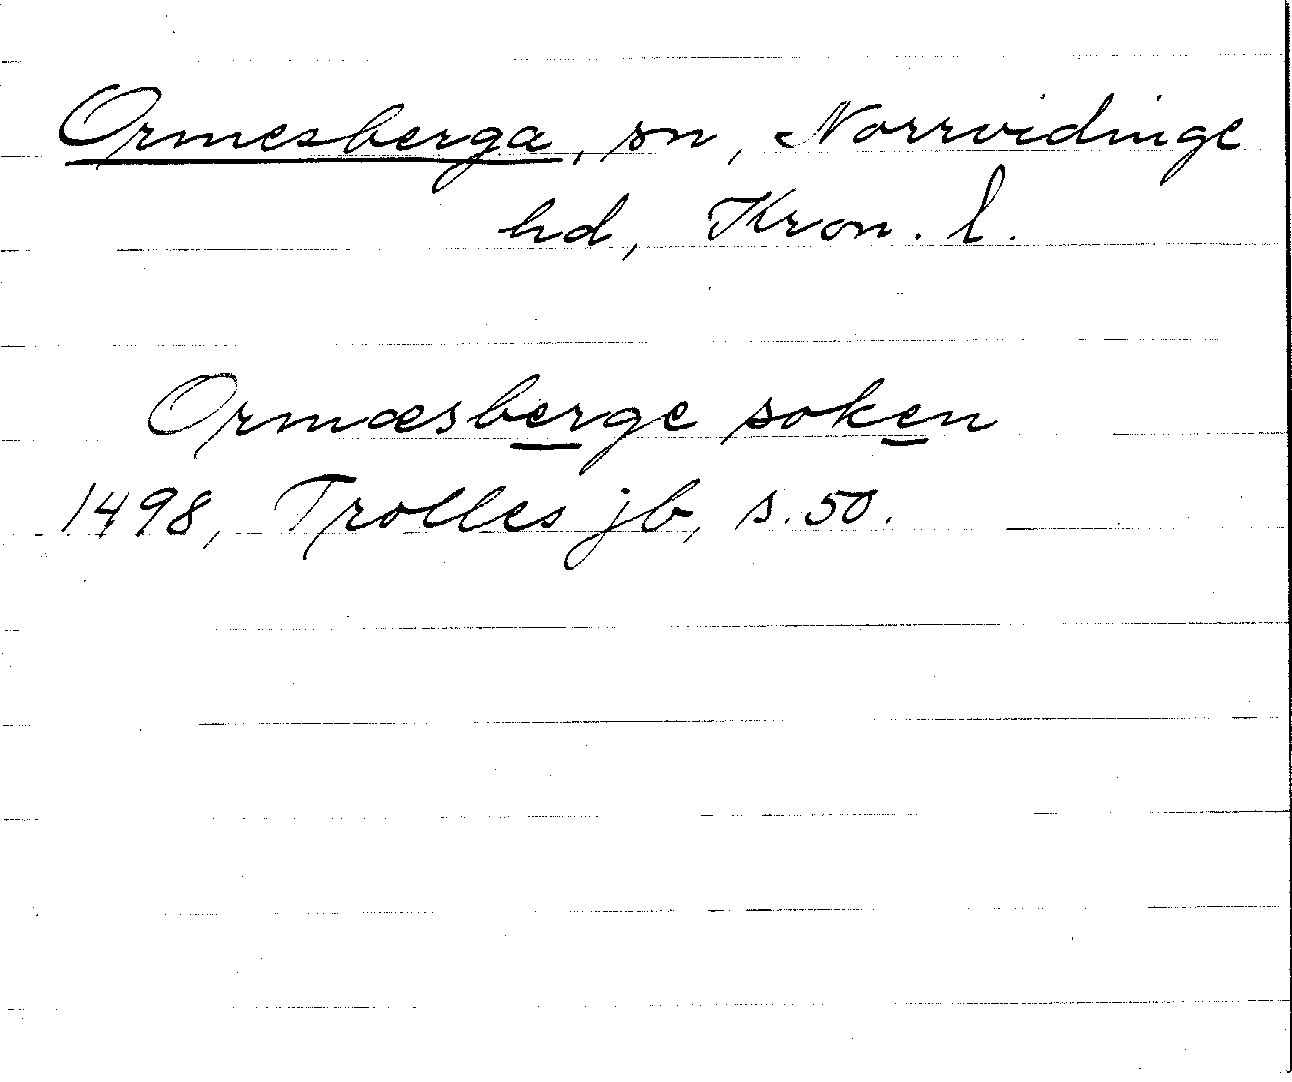 Ormesberga, sn, Norrvidinge
hd, Kron. l.
Ormæsberge soken
1498, Trolles jb, s. 50.